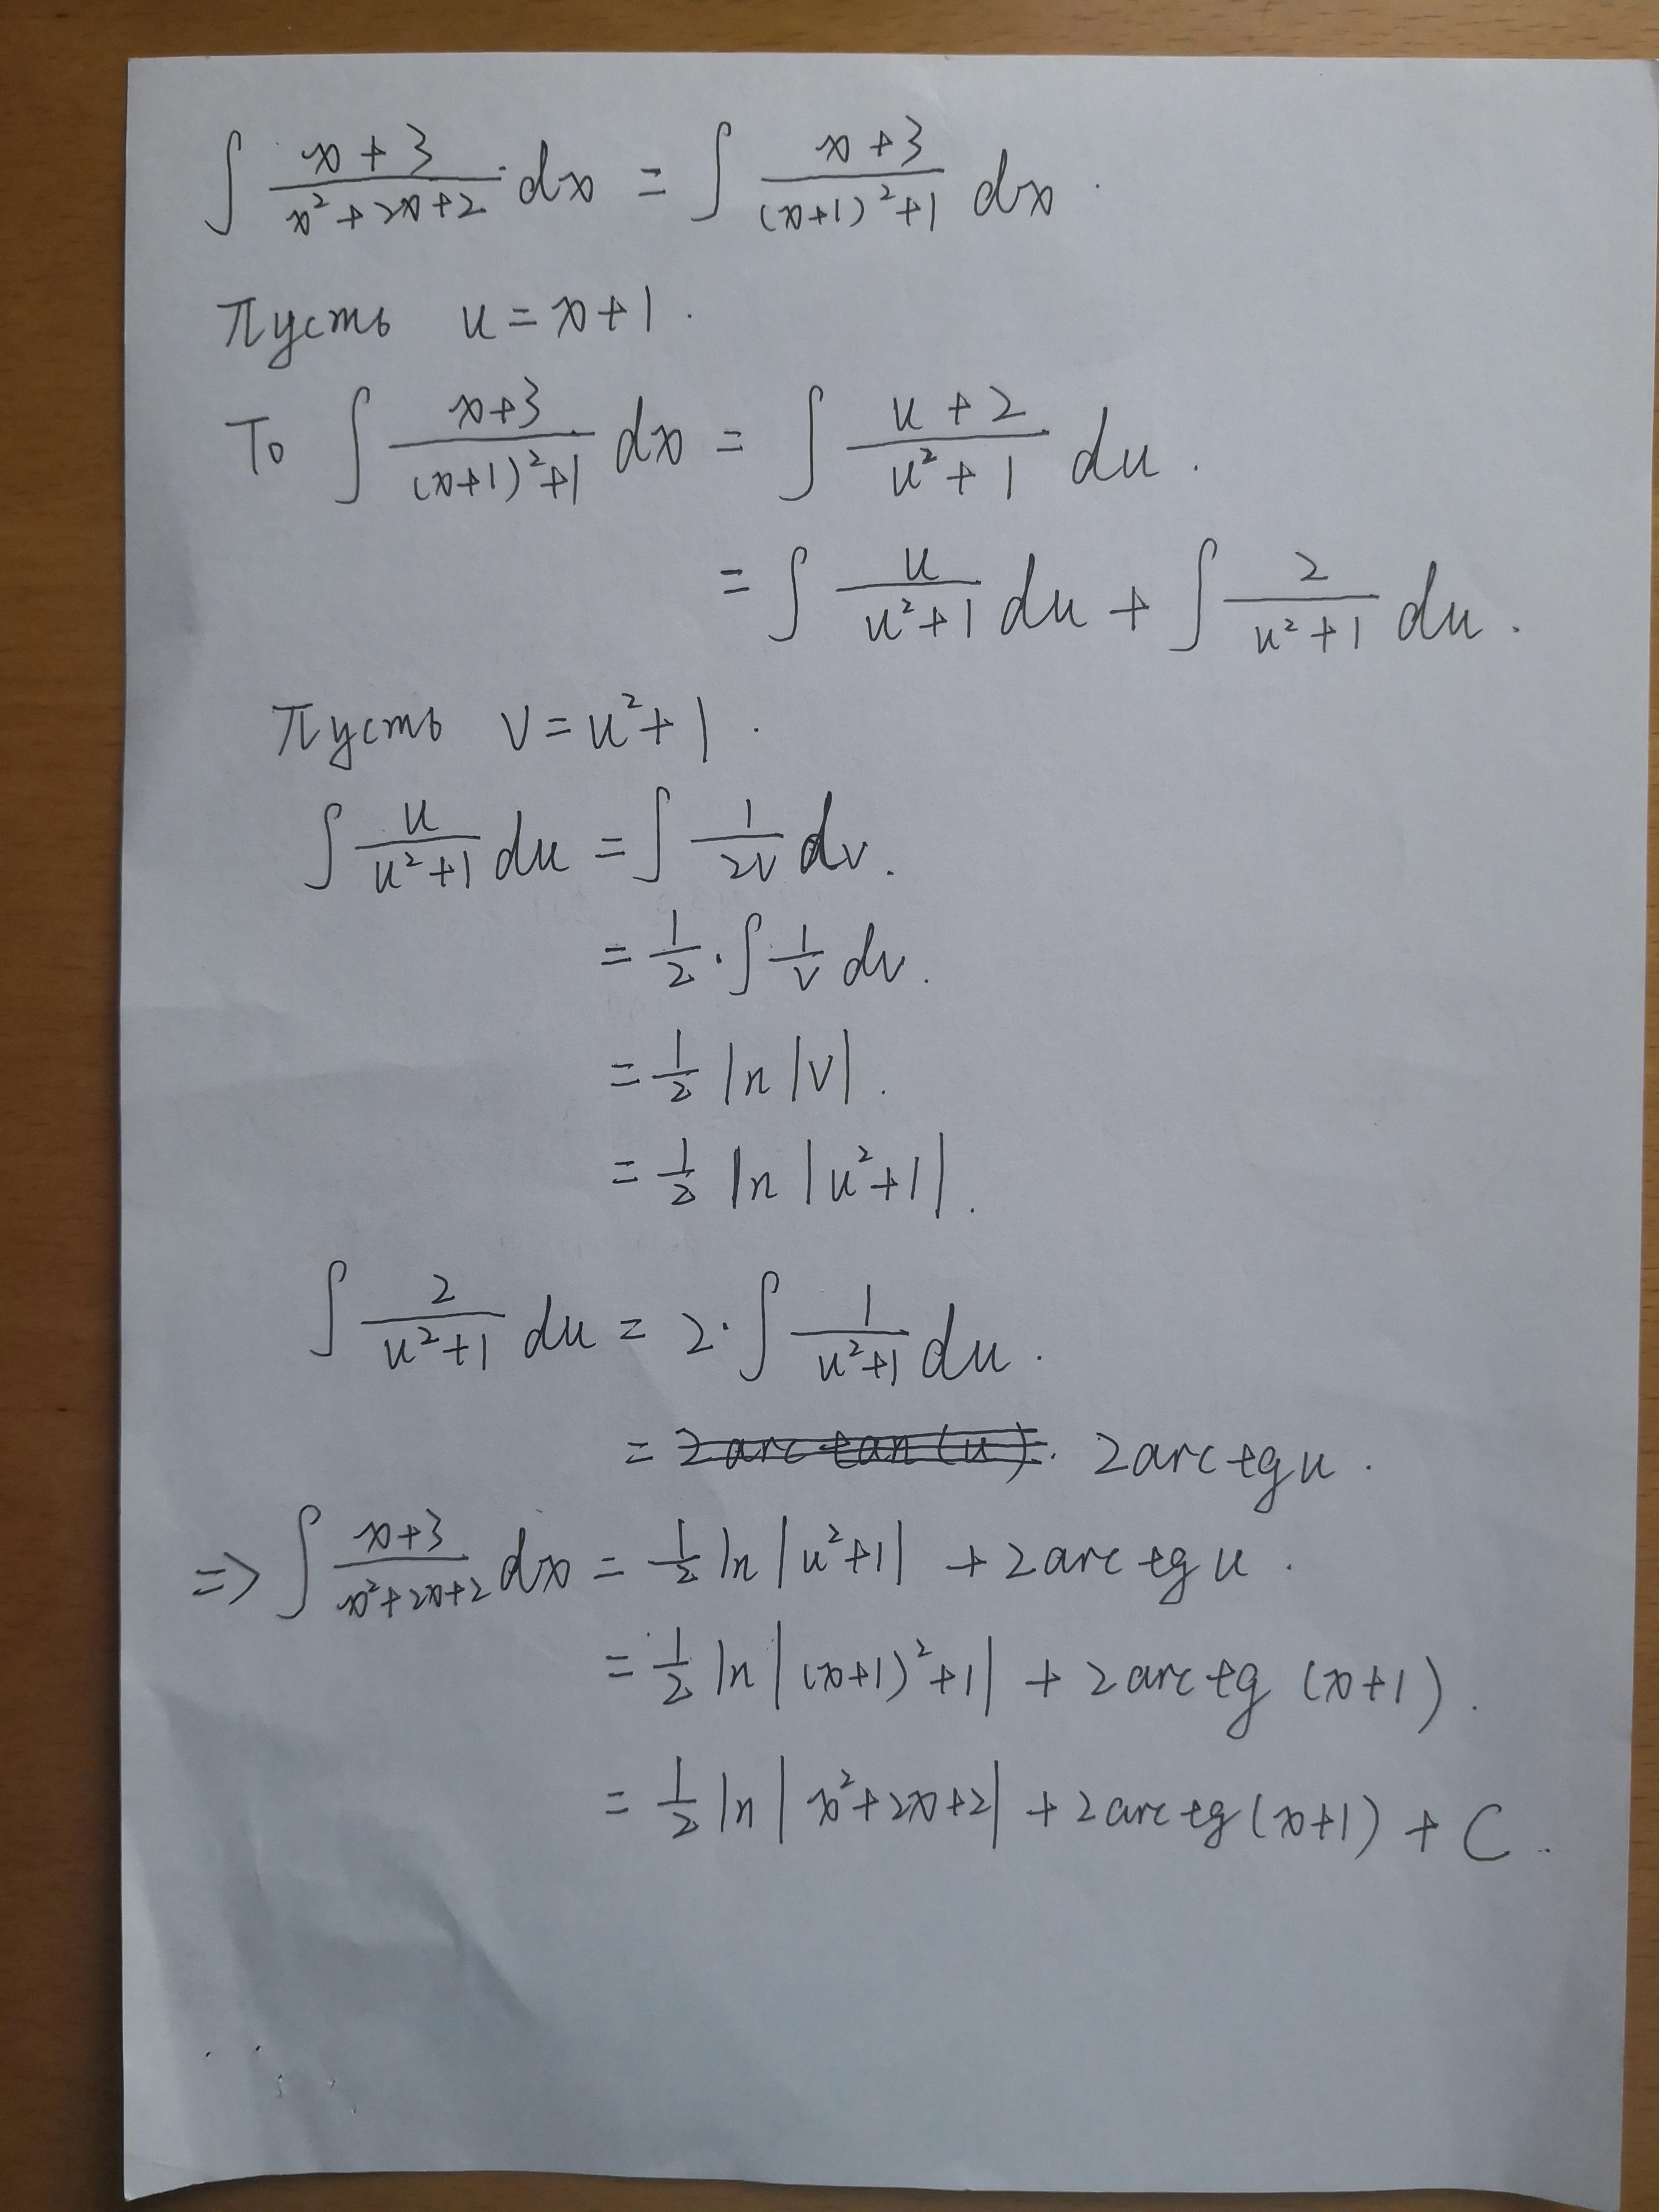 ∫ (x+3)/(x²+2x+2) dx = ∫ (x+3)/((x+1)²+1) dx.
Пусть u = x+1.
То ∫ (x+3)/((x+1)²+1) dx = ∫ (u+2)/(u²+1) du.
= ∫ u/(u²+1) du + ∫ 2/(u²+1) du.
Пусть v = u²+1.
∫ u/(u²+1) du = ∫ 1/(2v) dv.
= 1/2 · ∫ 1/v dv.
= 1/2 ln |v|.
= 1/2 ln |u²+1|.
∫ 2/(u²+1) du = 2 · ∫ 1/(u²+1) du.
= ~~2 arc tan (u).~~ 2 arc tg u.
=> ∫ (x+3)/(x²+2x+2) dx = 1/2 ln |u²+1| + 2 arc tg u.
= 1/2 ln |(x+1)²+1| + 2 arc tg (x+1).
= 1/2 ln |x²+2x+2| + 2 arc tg (x+1) + C.